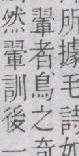 所據毛詩如
翬者鳥之奇
然翬訓後一